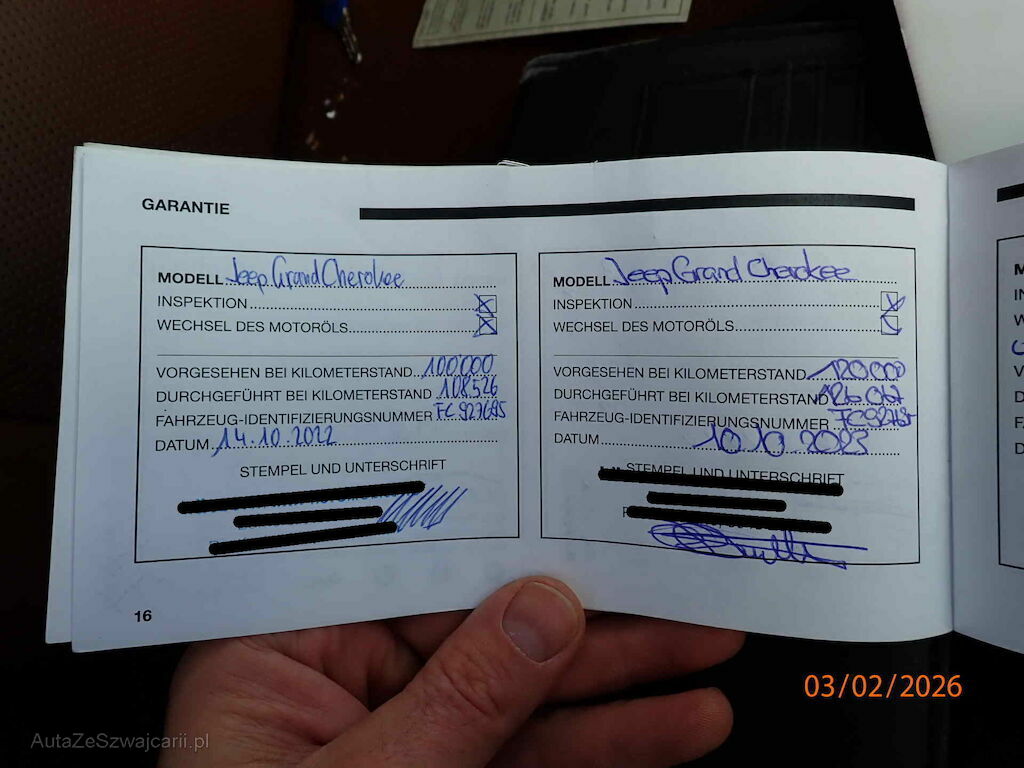 GARANTIE
MODELL Jeep Grand Cherokee
INSPEKTION
WECHSEL DES MOTORÖLS
VORGESEHEN BEI KILOMETERSTAND 100'000
DURCHGEFÜHRT BEI KILOMETERSTAND 108'526
FAHRZEUG-IDENTIFIZIERUNGSNUMMER FC927695
DATUM 14.10.2022
STEMPEL UND UNTERSCHRIFT
MODELL Jeep Grand Cherokee
INSPEKTION
WECHSEL DES MOTORÖLS
VORGESEHEN BEI KILOMETERSTAND 120'000
DURCHGEFÜHRT BEI KILOMETERSTAND
FAHRZEUG-IDENTIFIZIERUNGSNUMMER
DATUM 10.10.2023
STEMPEL UND UNTERSCHRIFT
16
03/02/2026
AutaZeSzwajcarii.pl